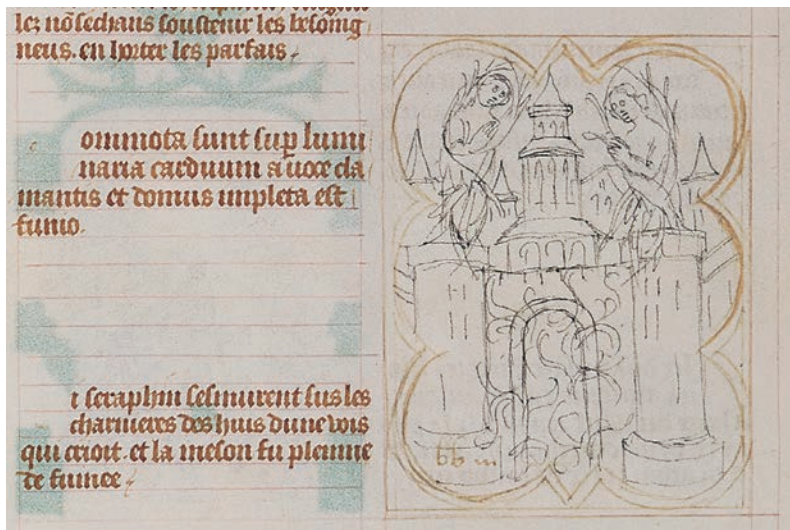 lez nōsechans soustenir les besoing
neus. en horter les parfais.
ommota sunt sup lumi
naria carduum a uoce cla
mantis et domus impleta est
fumo.
i seraphin sesmurent sus les
charnieres des huis dune vois
qui crioit. et la meson fu plenne
de fumee.
bb iii